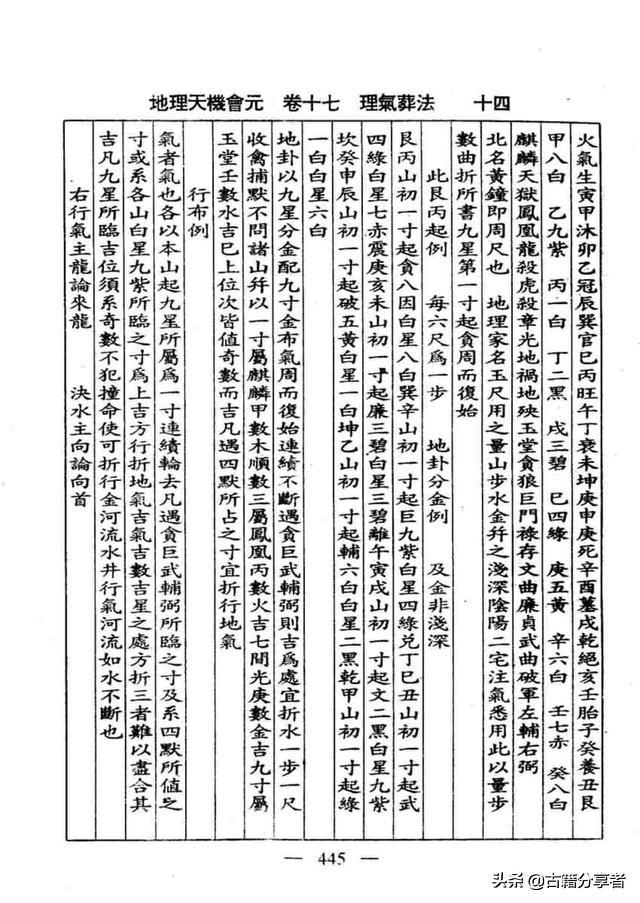 地理天機會元　卷十七　理氣葬法　十四
火氣生寅甲沐卯乙冠辰巽官巳丙旺午丁衰未坤庚申庚死辛酉墓戌乾絕亥壬胎子癸養丑艮
甲八白　乙九紫　丙一白　丁二黑　戌三碧　巳四綠　庚五黃　辛六白　壬七赤　癸八白
麒麟天獄鳳凰龍殺虎殺章光地禍地殃玉堂貪狼巨門祿存文曲廉貞武曲破軍左輔右弼
北名黃鐘即周尺也　地理家名玉尺用之量山步水金幷之淺深陰陽二宅注氣悉用此以量步
數曲折所書九星第一寸起貪周而復始
此艮丙起例　每六尺爲一步　地卦分金例　及金非淺深
艮丙山初一寸起貪八因白星八白巽辛山初一寸起巨九紫白星四綠兌丁巳丑山初一寸起武
四綠白星七赤震庚亥未山初一寸起廉三碧白星三碧離午寅戌山初一寸起文二黑白星九紫
坎癸申辰山初一寸起破五黃白星一白坤乙山初一寸起輔六白白星二黑乾甲山初一寸起綠
一白白星六白
地卦以九星分金配九寸金布氣周而復始連續不斷遇貪巨武輔弼則吉爲處宜折水一步一尺
收禽捕默不問諸山幷以一寸屬麒麟甲數木順數三屬鳳凰丙數火吉七間光庚數金吉九寸屬
玉堂壬數水吉巳上位次皆值奇數而吉凡遇四默所占之寸宜折行地氣
行布例
氣者氣也各以本山起九星所屬爲一寸連續輪去凡遇貪巨武輔弼所臨之寸及系四默所值之
寸或系各山白星九紫所臨之寸爲上吉方行折地氣吉氣吉數吉星之處方折三者難以盡合其
吉凡九星所臨吉位須系奇數不犯撞命使可折行金河流水井行氣河流如水不斷也
右行氣主龍論來龍　決水主向論向首
— 445 —
头条 @古籍分享者